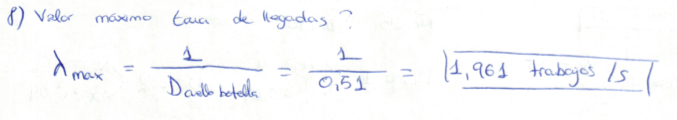 8) Valor máximo tasa de llegadas?
λmax = 1 / Dcuello botella = 1 / 0,51 = 1,961 trabajos /s